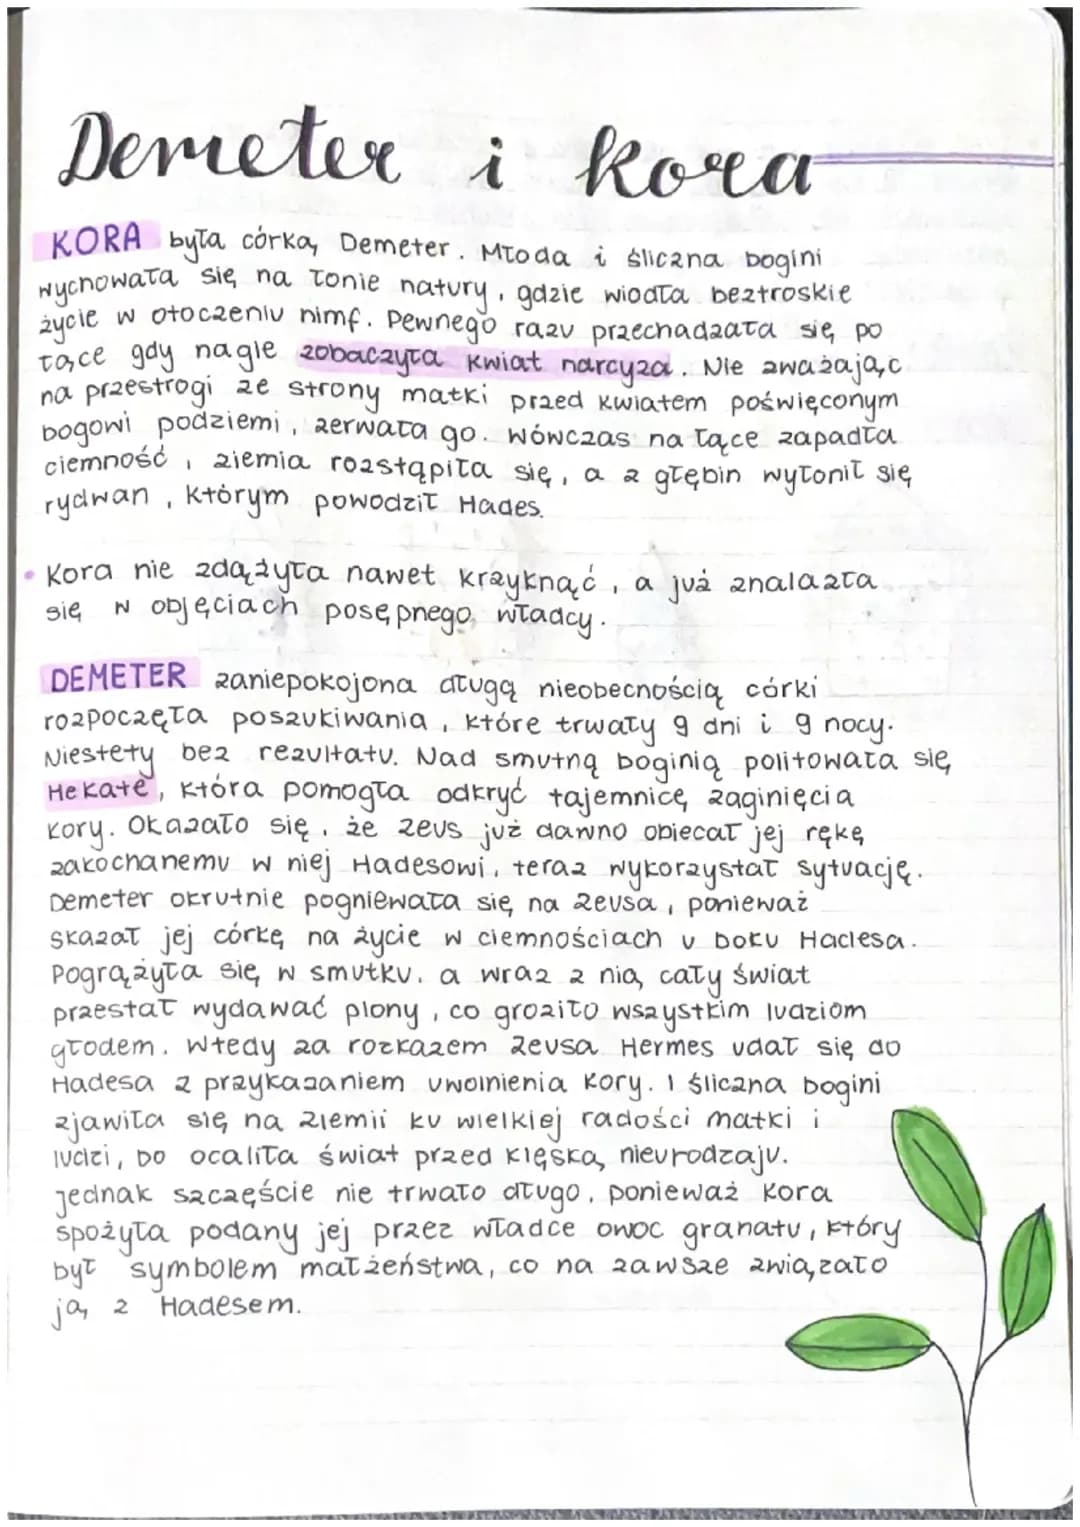 Demeter i kora
KORA była córką Demeter. Młoda i śliczna bogini
wychowała się na łonie natury, gdzie wiodła beztroskie
życie w otoczeniu nimf. Pewnego razu przechadzała się po
łące gdy nagle zobaczyła kwiat narcyza. Nie zważając
na przestrogi ze strony matki przed kwiatem poświęconym
bogowi podziemi, zerwała go. Wówczas na łące zapadła
ciemność, ziemia rozstąpiła się, a z głębin wyłonił się
rydwan, którym powodził Hades.
• Kora nie zdążyła nawet krzyknąć, a już znalazła
się w objęciach posępnego władcy.
DEMETER zaniepokojona długą nieobecnością córki
rozpoczęła poszukiwania, które trwały 9 dni i 9 nocy.
Niestety bez rezultatu. Nad smutną boginią politowała się
Hekate, która pomogła odkryć tajemnicę zaginięcia
Kory. Okazało się, że Zeus już dawno obiecał jej rękę
zakochanemu w niej Hadesowi, teraz wykorzystał sytuację.
Demeter okrutnie pogniewała się na Zeusa, ponieważ
skazał jej córkę na życie w ciemnościach u boku Hadesa.
Pogrążyła się w smutku, a wraz z nią cały świat
przestał wydawać plony, co groziło wszystkim ludziom
głodem. Wtedy za rozkazem Zeusa Hermes udał się do
Hadesa z przykazaniem uwolnienia Kory. I śliczna bogini
zjawiła się na ziemii ku wielkiej radości matki i
ludzi, bo ocaliła świat przed klęską nieurodzaju.
Jednak szczęście nie trwało długo, ponieważ Kora
spożyła podany jej przez władce owoc granatu, który
był symbolem małżeństwa, co na zawsze związało
ją z Hadesem.